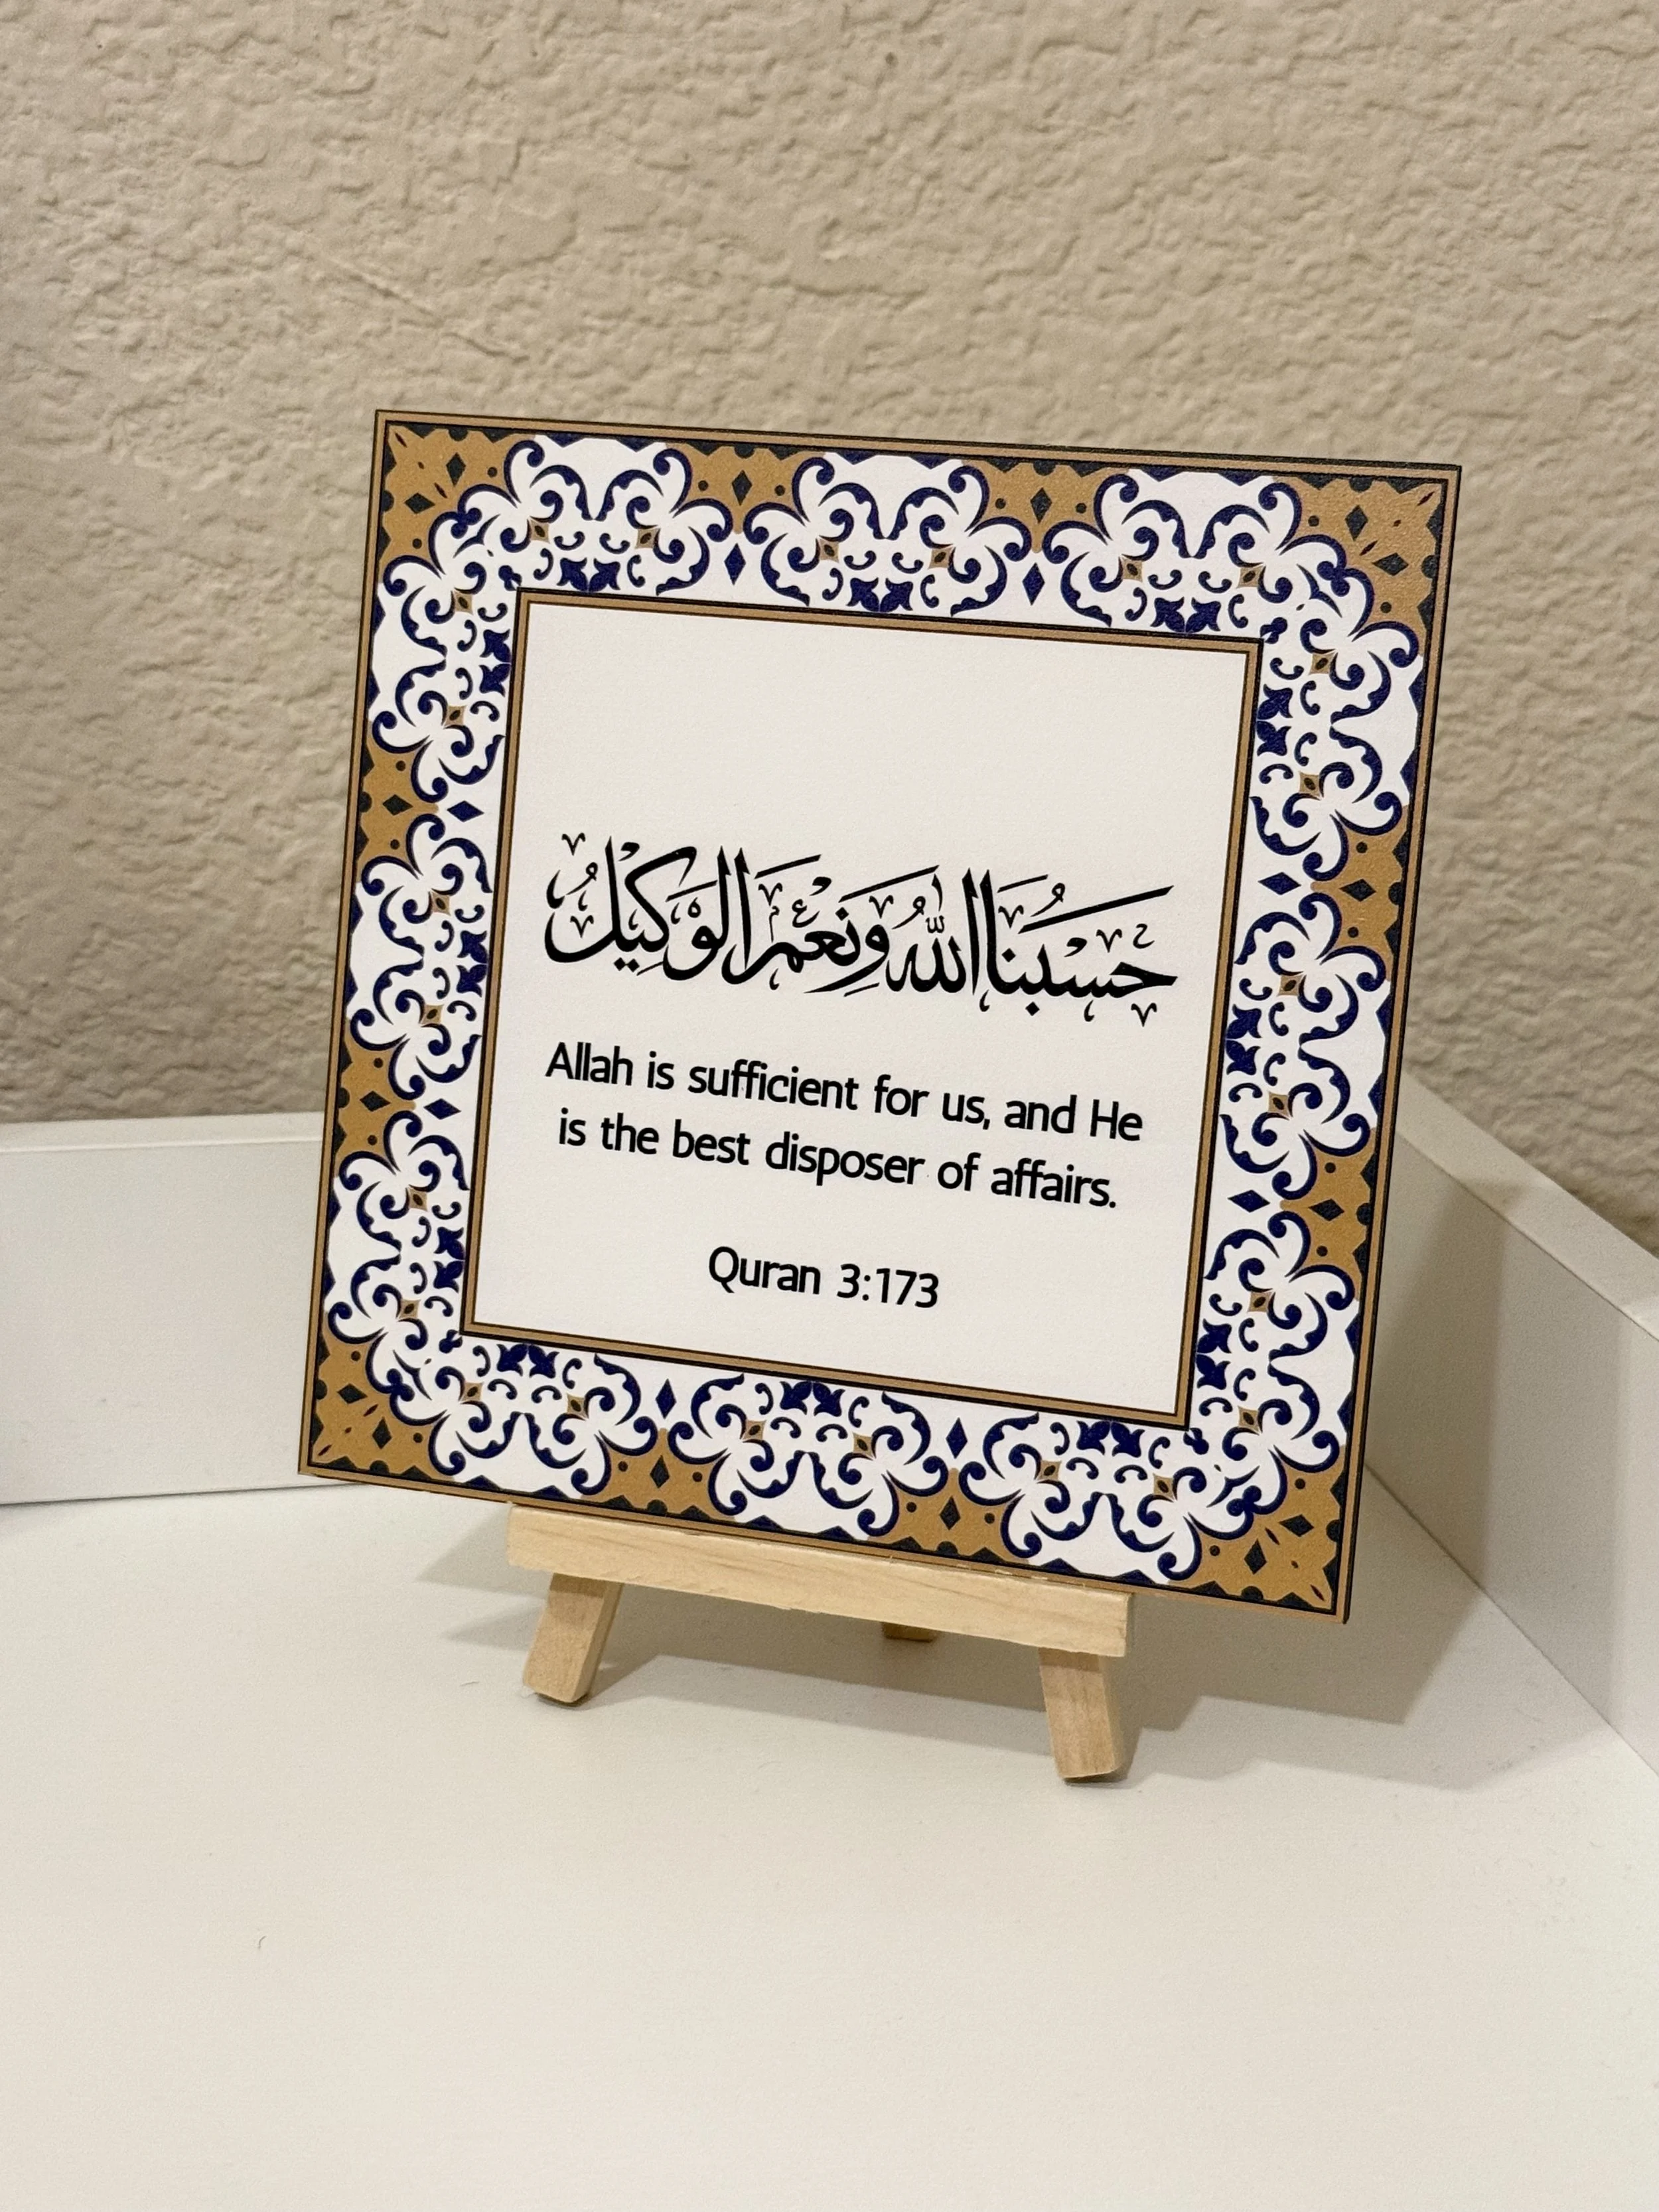 حَسْبُنَا اللَّهُ وَنِعْمَ الْوَكِيلُ
Allah is sufficient for us, and He
is the best disposer of affairs.
Quran 3:173